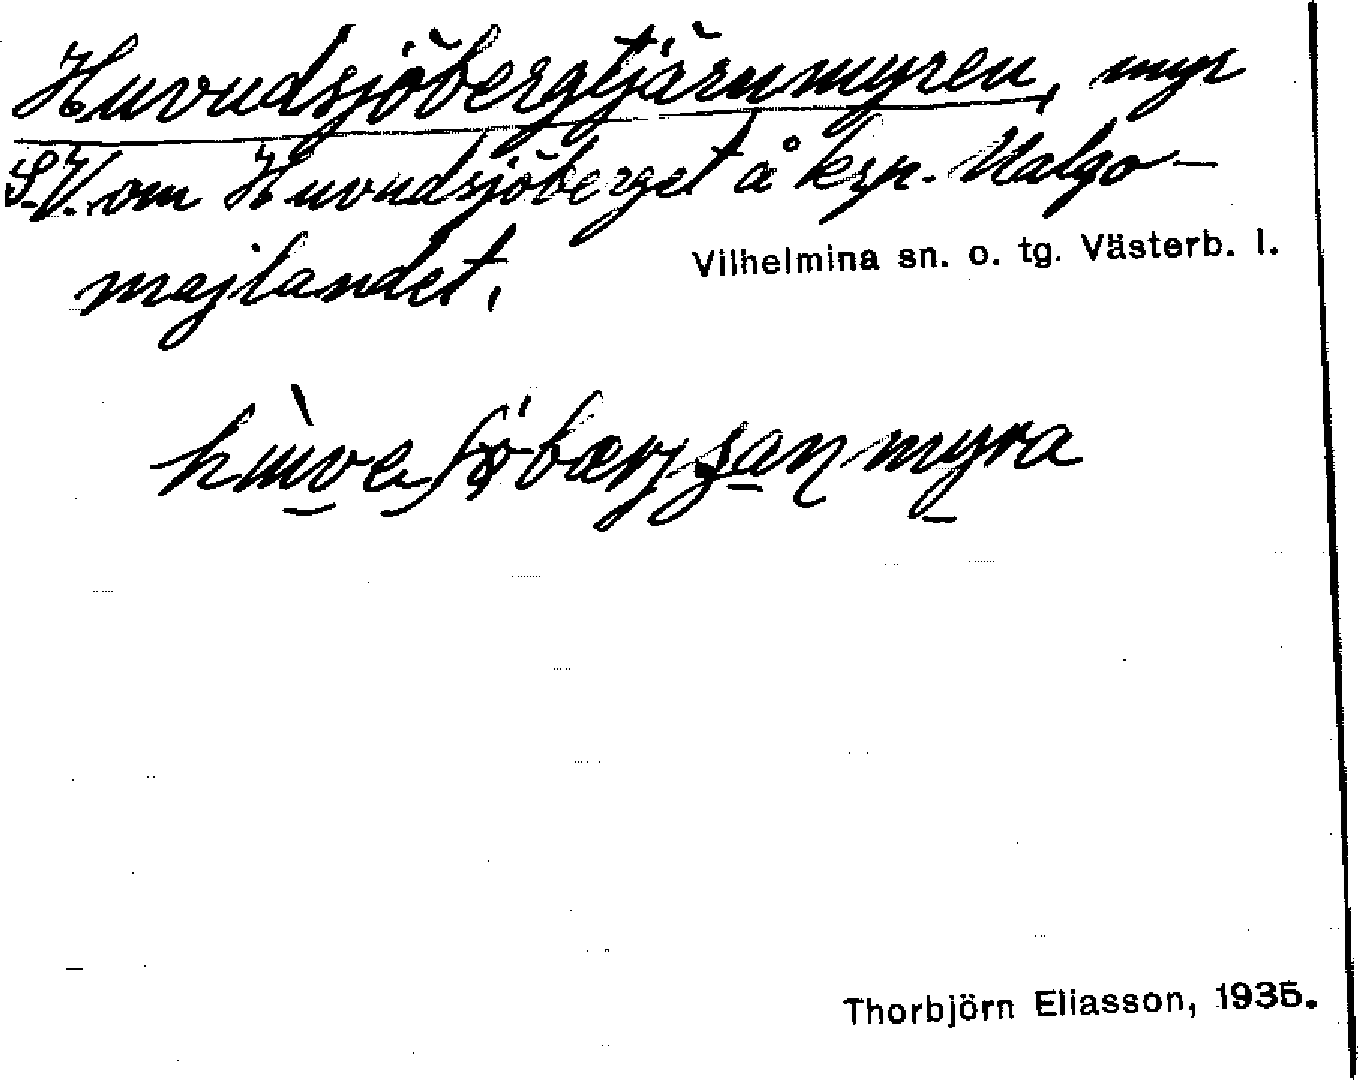 Huvudsjöbergtjärnmyren, myr
S.V. om Huvudsjöberget å ksp. Malgo-
majlandet.
Vilhelmina sn. o. tg. Västerb. l.
Thorbjörn Eliasson, 1935.